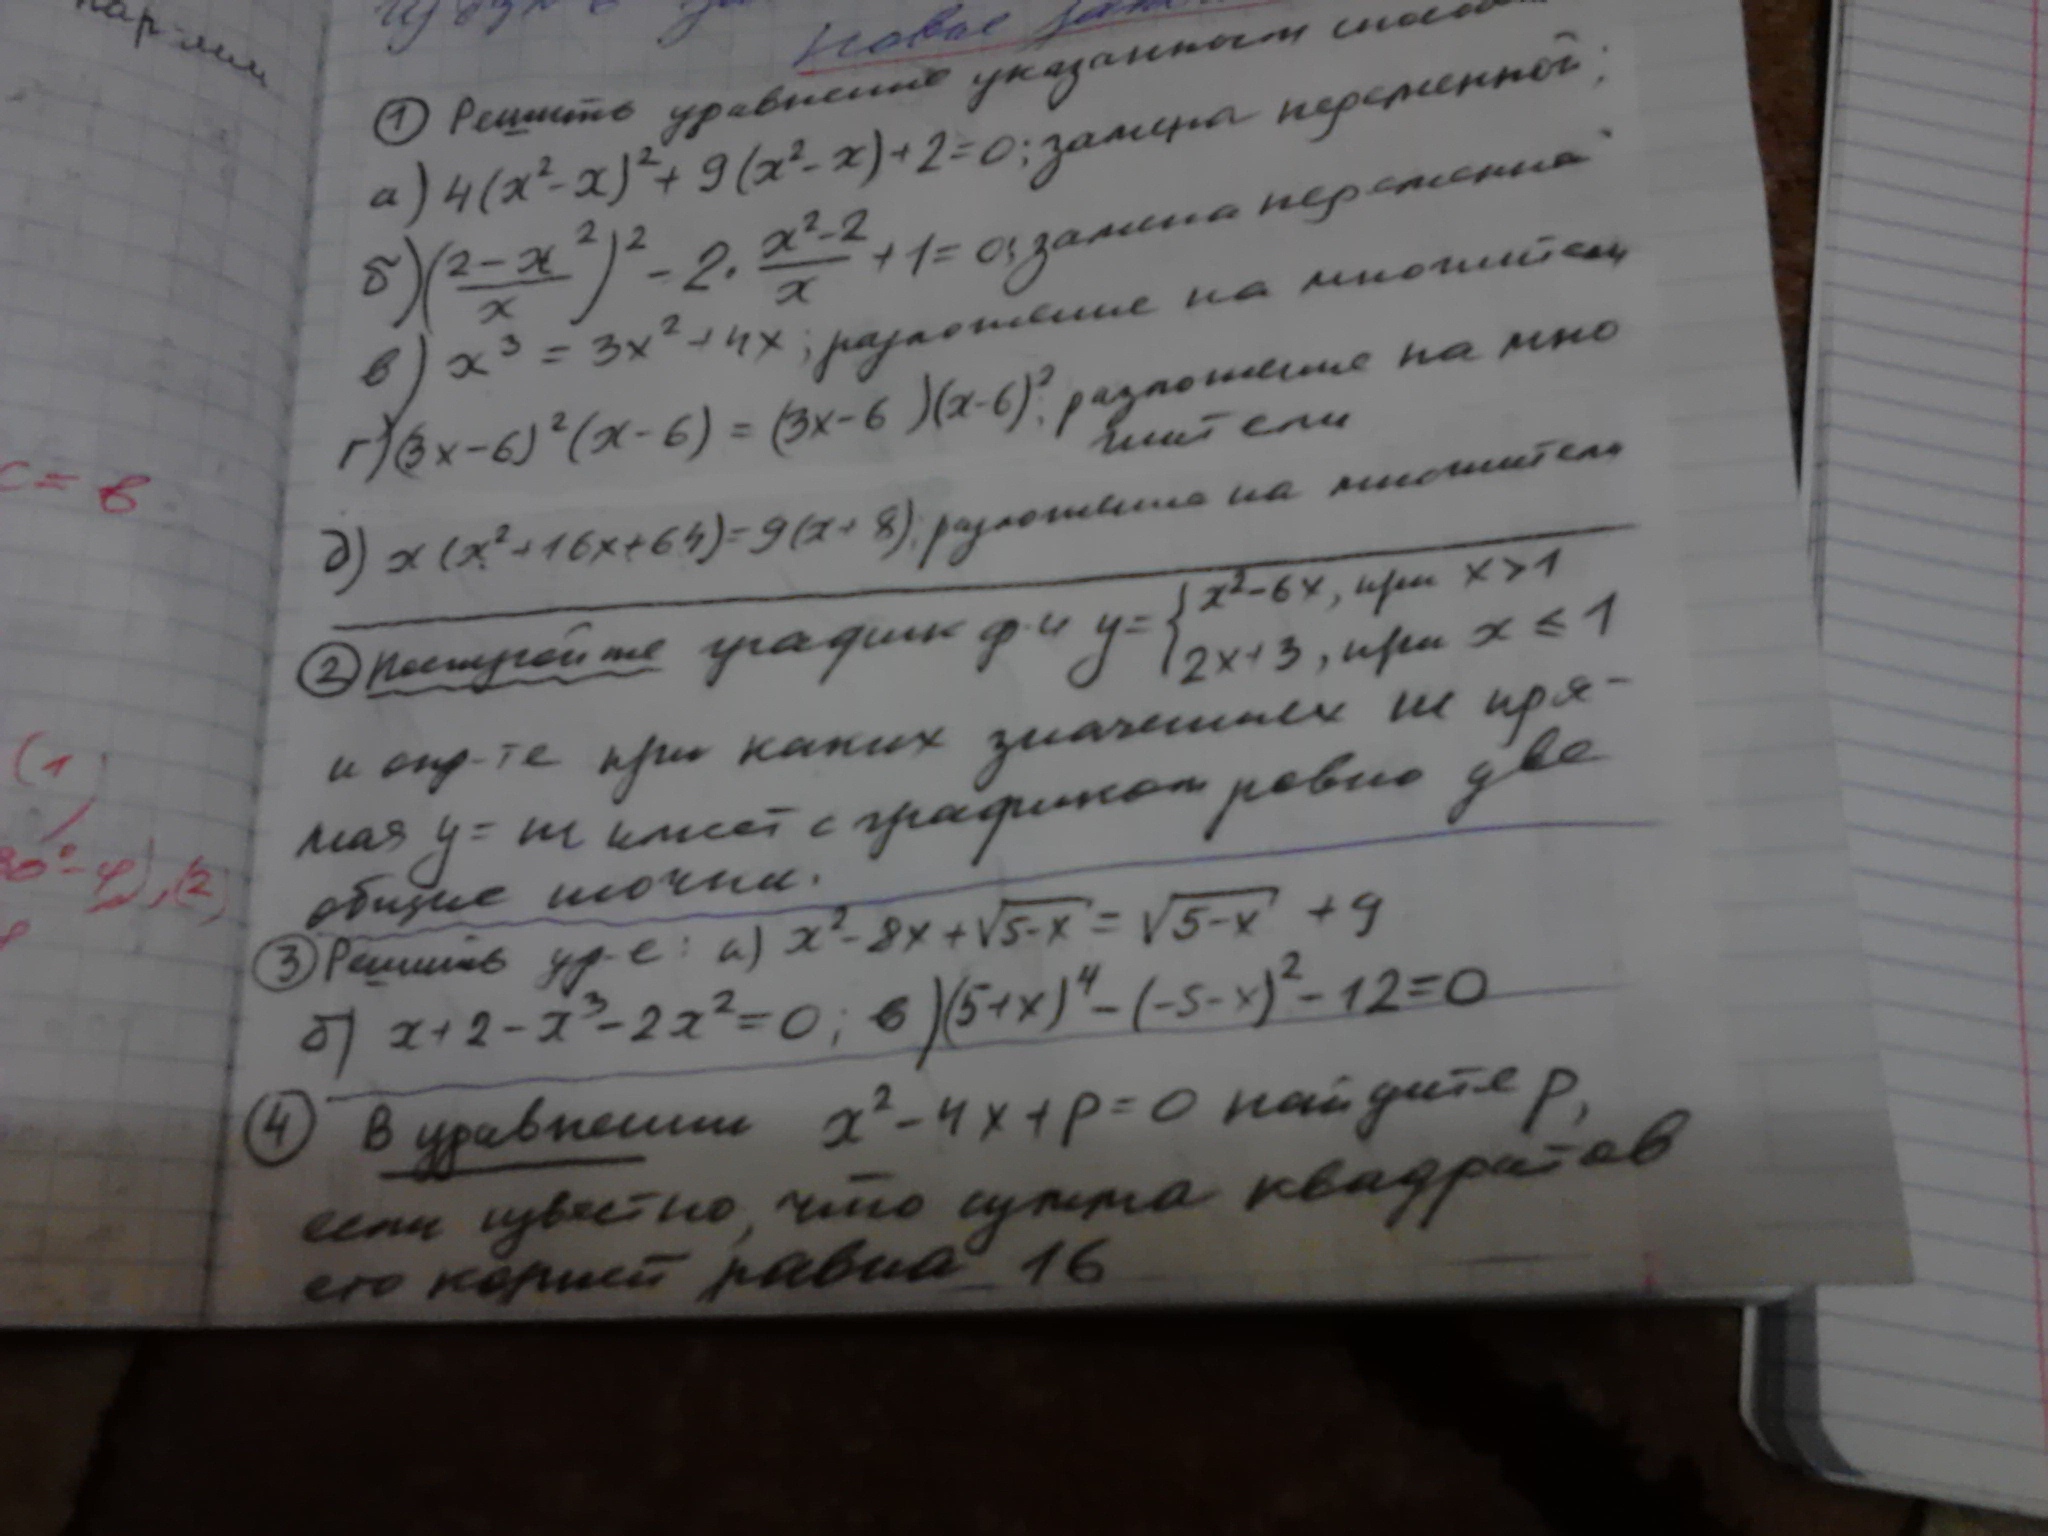 ① Решить уравнение указанным
а) 4(x²-x)²+9(x²-x)+2=0; замена переменной;
б) ((2-x²)/x)² - 2·(x²-2)/x + 1=0; замена переменной
в) x³ = 3x²+4x; разложение на множители
г) (3x-6)²(x-6) = (3x-6)(x-6)²; разложение на мно
жители
д) x(x²+16x+64)=9(x+8); разложение на множители
② Постройте график ф-и y={x²-6x, при x>1
2x+3, при x≤1
и опр-те при каких значениях m пря-
мая y=m имеет с графиком ровно две
общие точки.
③ Решить ур-е: а) x²-8x+√5-x = √5-x +9
б) x+2-x³-2x²=0; в) (5+x)⁴-(-5-x)²-12=0
④ В уравнении x²-4x+p=0 найдите p,
если известно, что сумма квадратов
его корней равна 16
с=в
(1